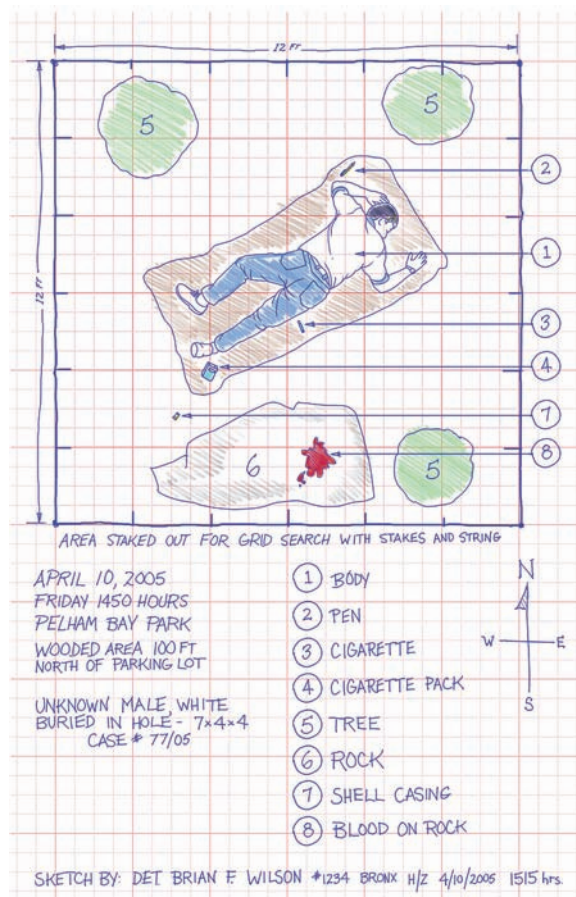 12 FT
5
5
2
1
12 FT
3
4
7
8
6
5
AREA STAKED OUT FOR GRID SEARCH WITH STAKES AND STRING
APRIL 10, 2005
FRIDAY 1450 HOURS
PELHAM BAY PARK
WOODED AREA 100 FT
NORTH OF PARKING LOT
UNKNOWN MALE, WHITE
BURIED IN HOLE - 7×4×4
CASE # 77/05
1 BODY
2 PEN
3 CIGARETTE
4 CIGARETTE PACK
5 TREE
6 ROCK
7 SHELL CASING
8 BLOOD ON ROCK
N
W E
S
SKETCH BY: DET BRIAN F. WILSON #1234 BRONX H/Z 4/10/2005 1515 hrs.